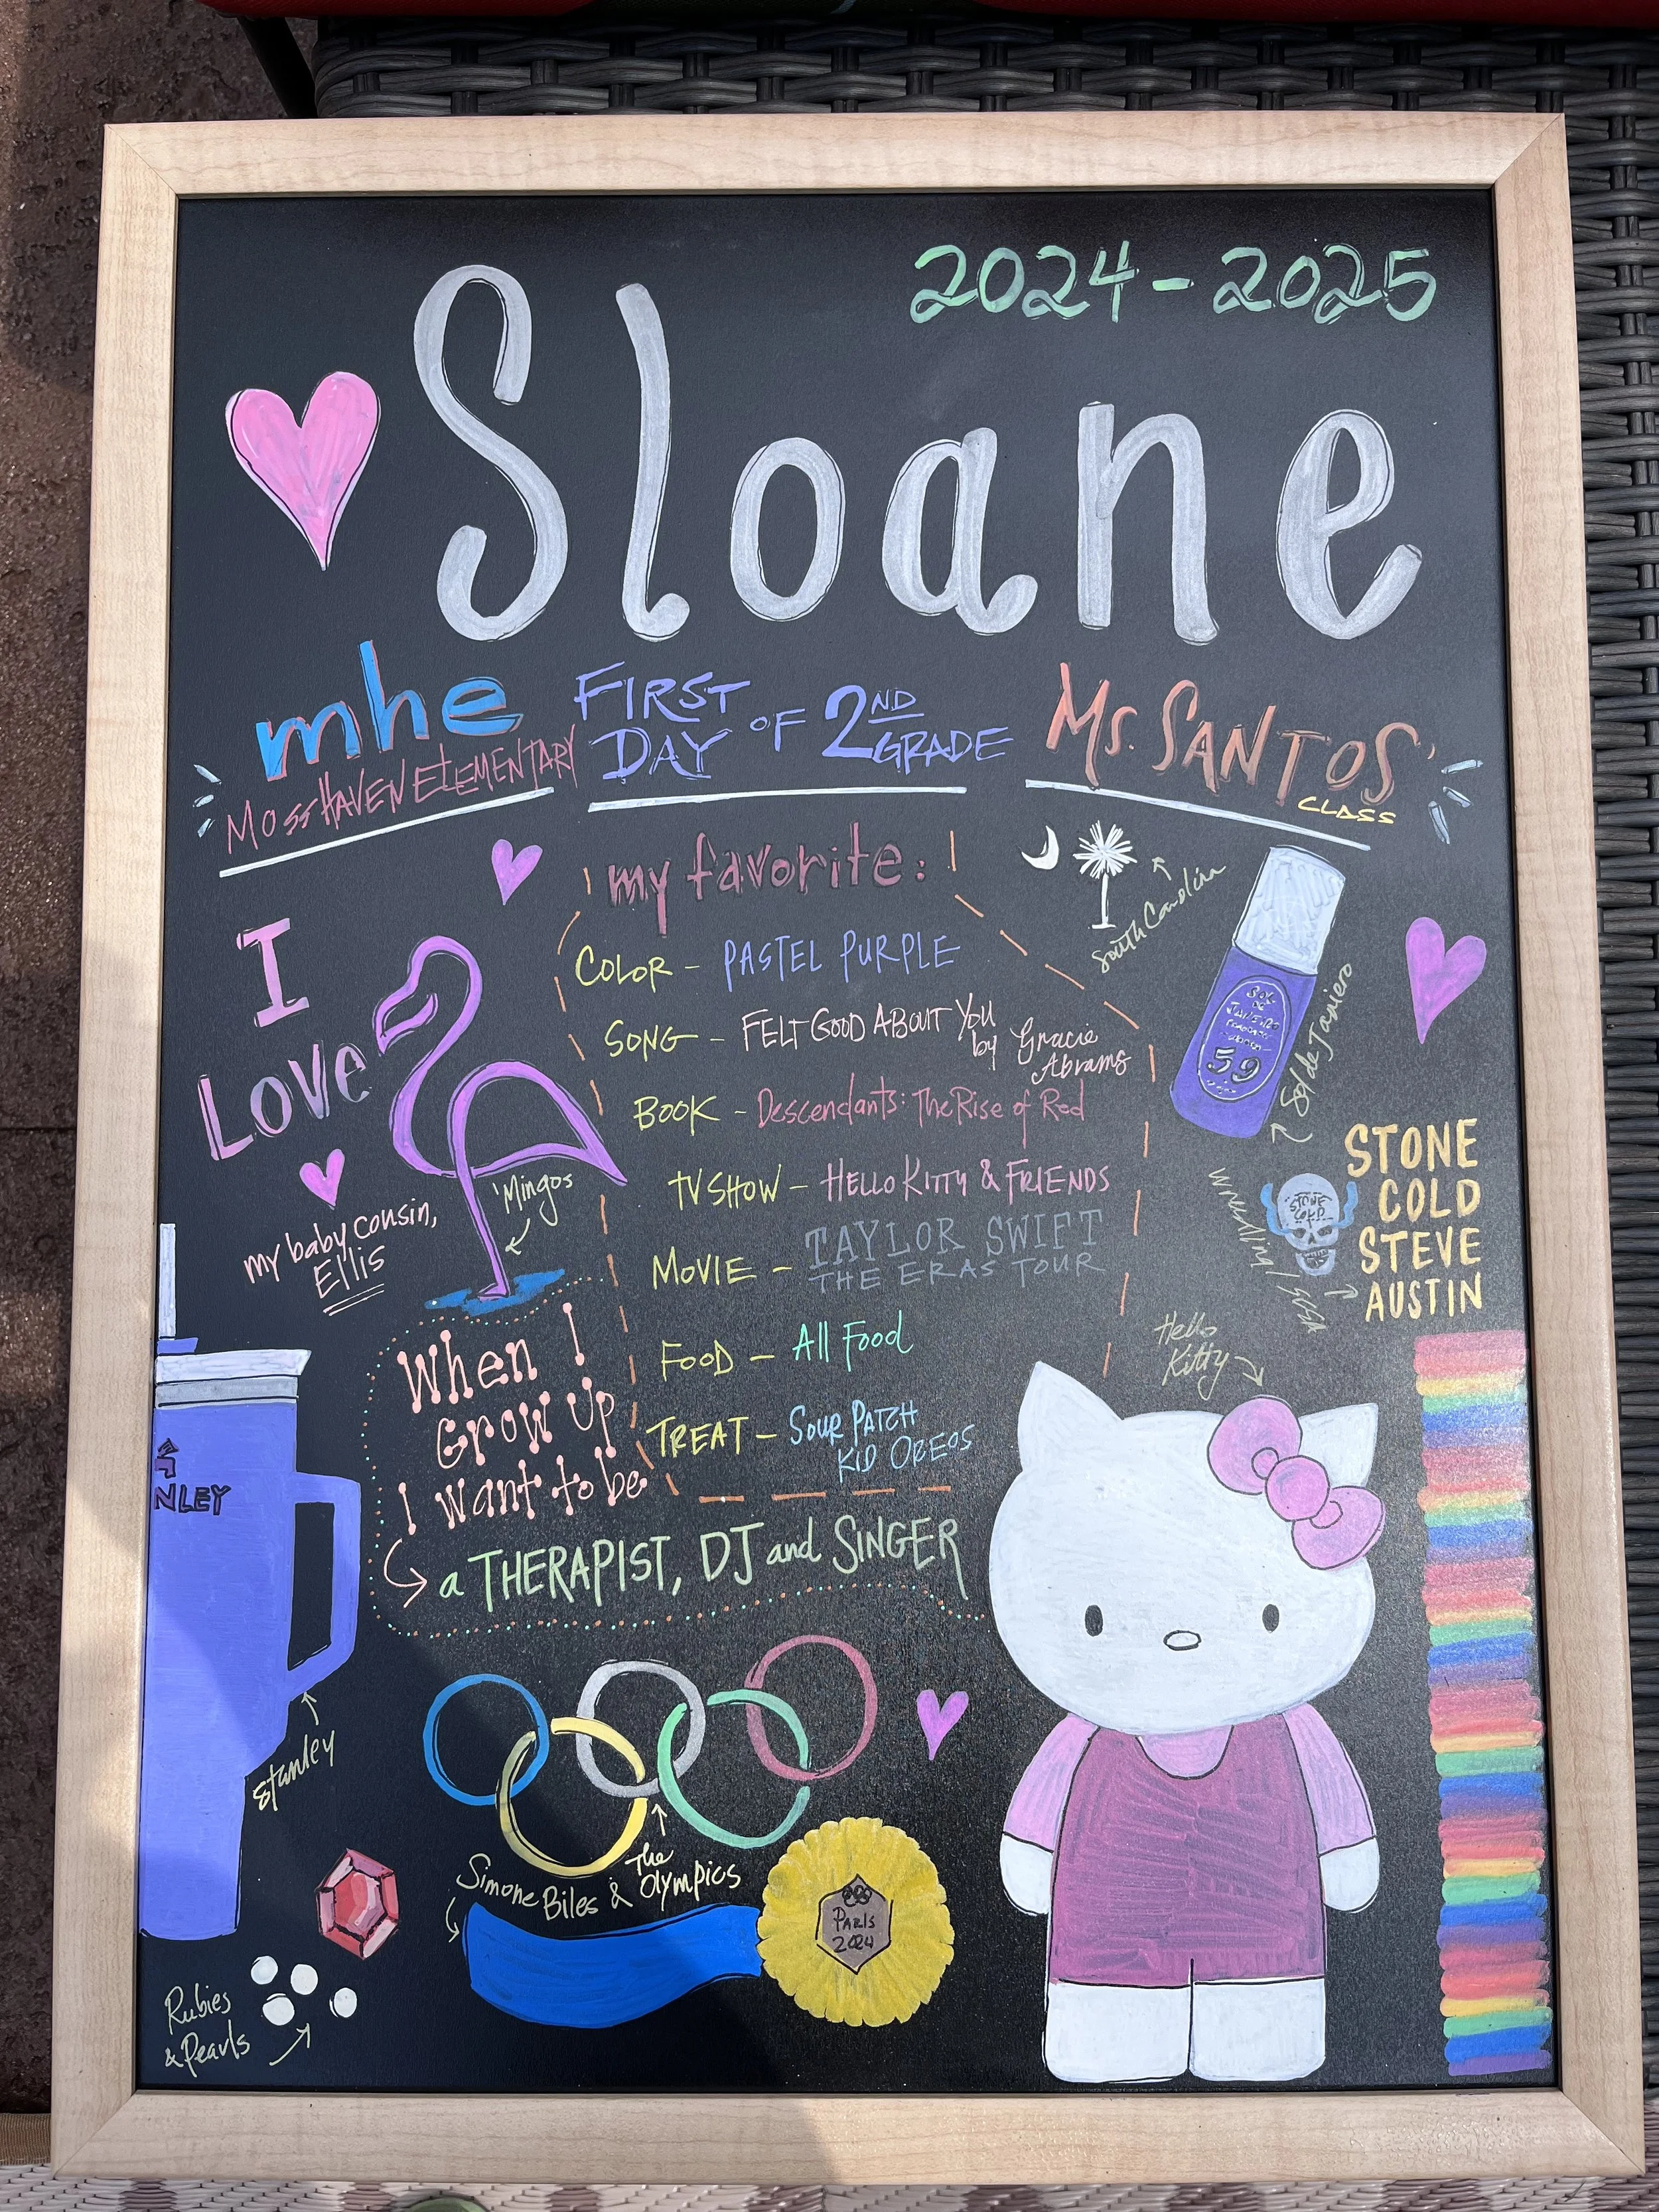 2024-2025
Sloane
mhe
MOSS HAVEN ELEMENTARY
FIRST
DAY OF 2ND
GRADE
MS. SANTOS'
CLASS
my favorite:
COLOR - PASTEL PURPLE
SONG - FELT GOOD ABOUT YOU
by Gracie
Abrams
BOOK - Descendants: The Rise of Red
TV SHOW - HELLO KITTY & FRIENDS
MOVIE - TAYLOR SWIFT
THE ERAS TOUR
FOOD - All Food
TREAT - SOUR PATCH
KID OREOS
I
LOVE
'Mingos
my baby cousin,
Ellis
South Carolina
59
Sol de Janiero
STONE
COLD
STONE
COLD
STEVE
AUSTIN
Hello
Kitty
When I
Grow Up
I want to be
a THERAPIST, DJ and SINGER
NLEY
Stanley
Simone Biles & The
Olympics
PARIS
2024
Rubies
& Pearls